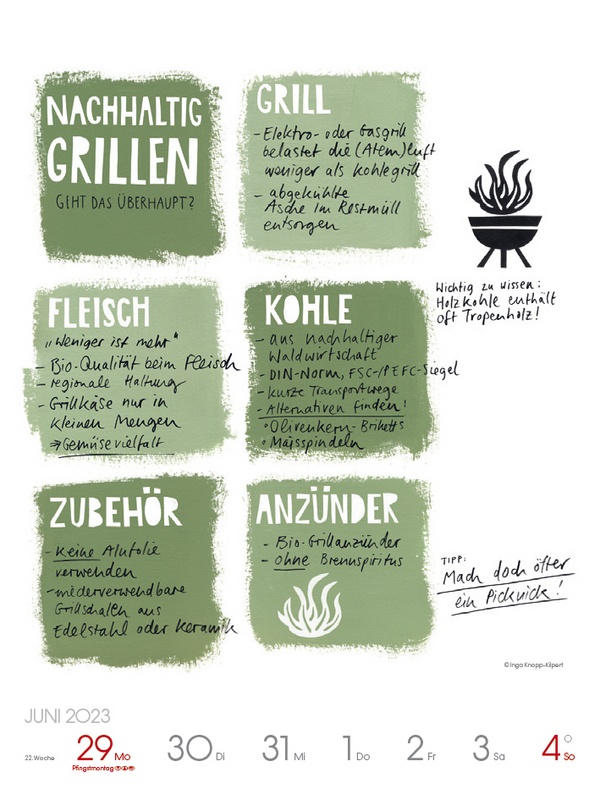 NACHHALTIG
GRILLEN
GEHT DAS ÜBERHAUPT?
GRILL
- Elektro- oder Gasgrill
belastet die (Atem)luft
weniger als Kohlegrill
- abgekühlte
Asche im Restmüll
entsorgen
Wichtig zu wissen:
Holzkohle enthält
oft Tropenholz!
FLEISCH
„Weniger ist mehr“
- Bio-Qualität beim Fleisch
- regionale Haltung
- Grillkäse nur in
kleinen Mengen
⇒ Gemüsevielfalt
KOHLE
- aus nachhaltiger
Waldwirtschaft
- DIN-Norm, FSC-/PEFC-Siegel
- kurze Transportwege
- Alternativen finden!
° Olivenkern-Briketts
° Maisspindeln
ZUBEHÖR
- keine Alufolie
verwenden
- wiederverwendbare
Grillschalen aus
Edelstahl oder Keramik
ANZÜNDER
- Bio-Grillanzünder
- ohne Brennspiritus
TIPP:
Mach doch öfter
ein Picknick!
© Inga Knopp-Kilpert
JUNI 2023
22. Woche 29 Mo 30 Di 31 Mi 1 Do 2 Fr 3 Sa 4 So
Pfingstmontag